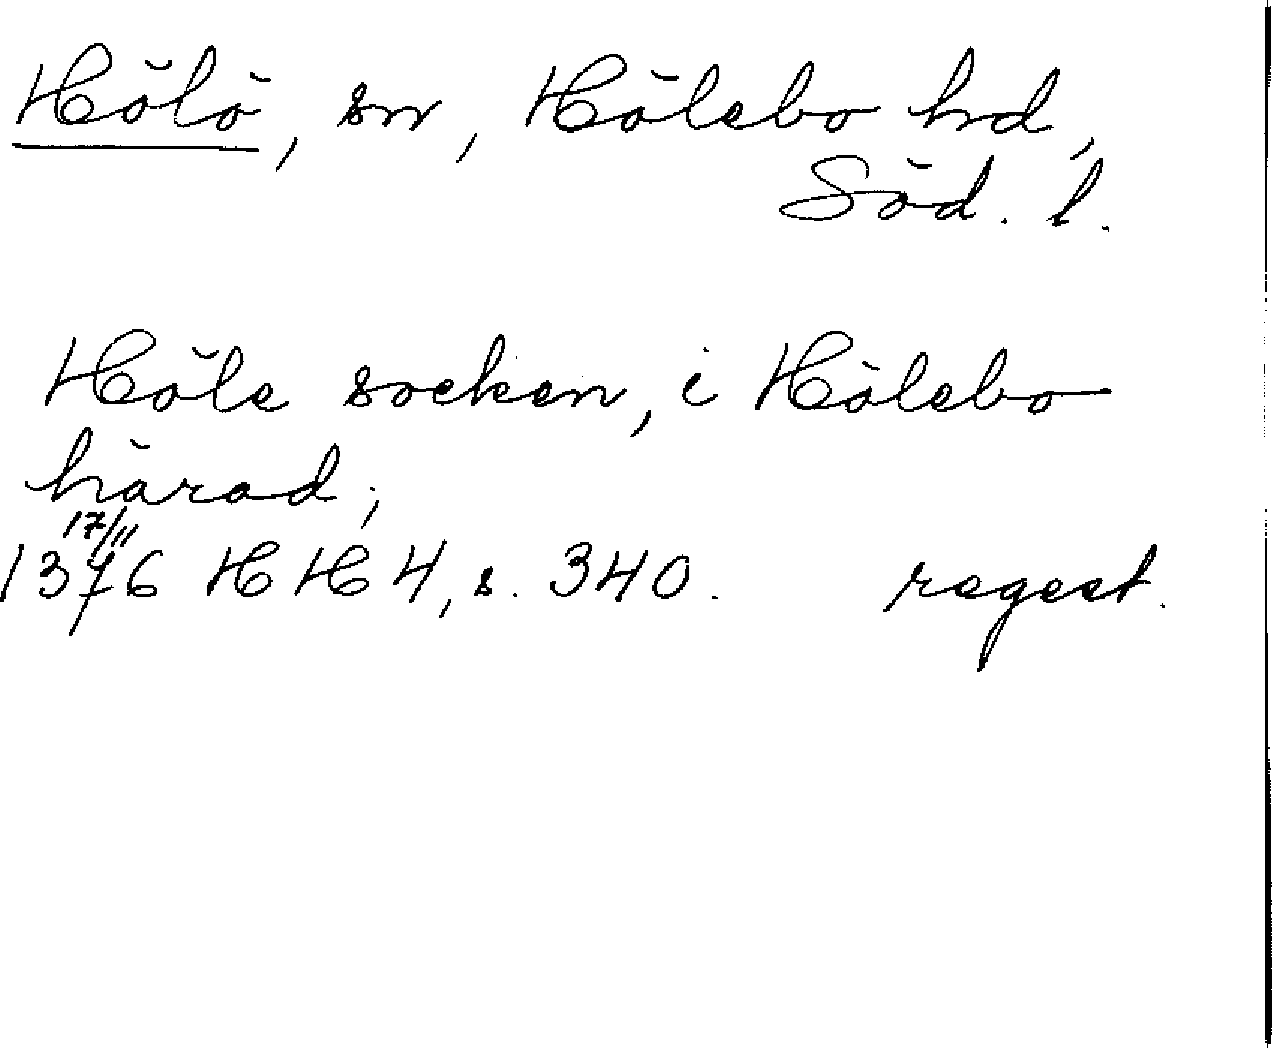 Hölö, sn, Hölebo hd,
Söd. l.
Höle socken, i Hölebo
härad;
17/11
1376 HH 4, s. 340. regest.